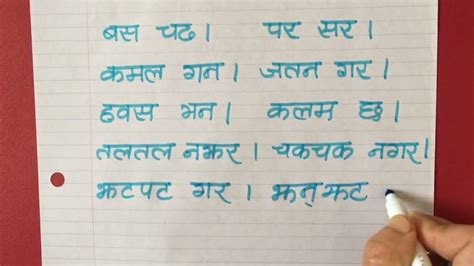 बस चढ। पर सर।
कमल गन। जतन गर।
हवस भन। कलम छु।
तलतल नझर। चकचक नगर।
झटपट गर। झन् झट